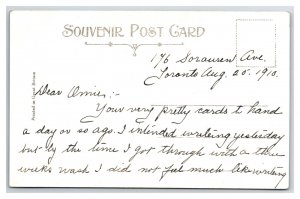 SOUVENIR POST CARD
176 Sorauren Ave.
Toronto Aug. 25. 1910.
Dear Annie:-
Your very pretty cards to hand
a day or so ago. I intended writing yesterday
but by the time I got through with a three
weeks wash I did not feel much like writing